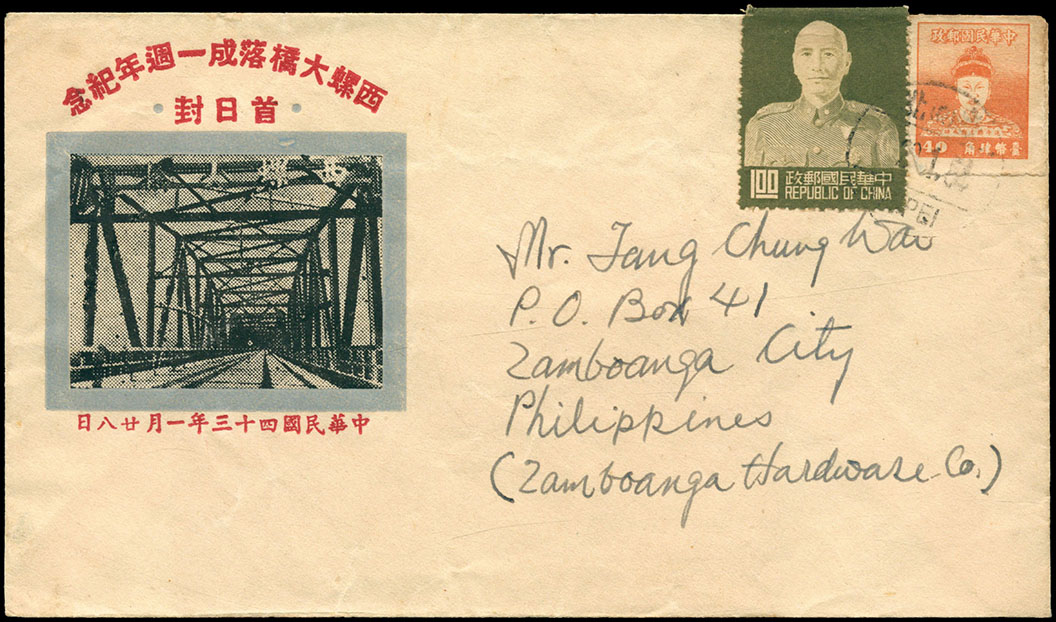 西螺大橋落成一週年紀念
首日封
中華民國四十三年一月廿八日
中華民國郵政
1.00
REPUBLIC OF CHINA
中華民國郵政
臺幣肆角
40
Mr. Tang Chung Wai
P.O. Box 41
Zamboanga City
Philippines
(Zamboanga Hardware Co.)